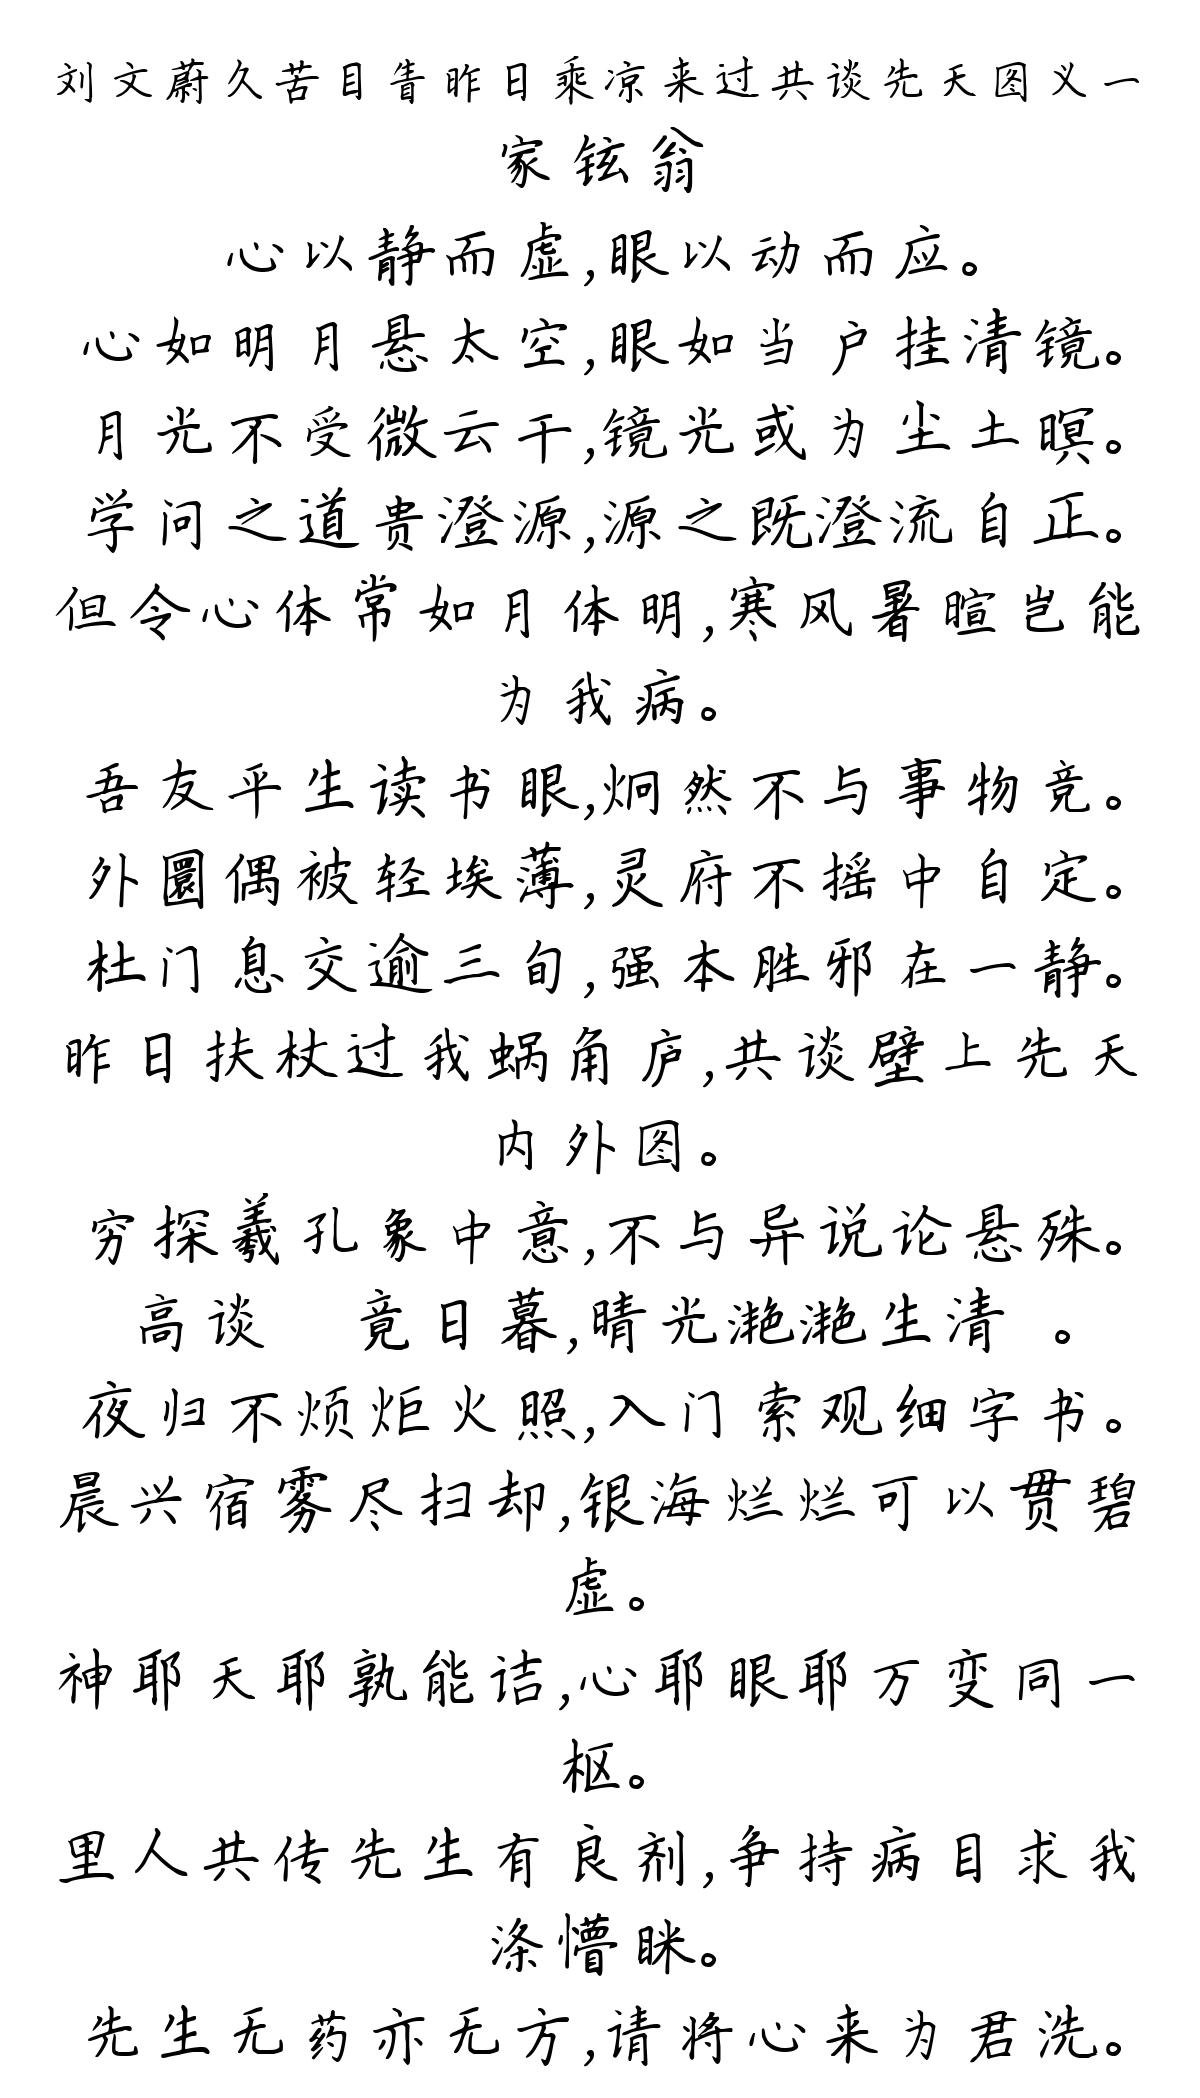 刘文蔚久苦目眚昨日乘凉来过共谈先天图义一
家铉翁
心以静而虚,眼以动而应。
心如明月悬太空,眼如当户挂清镜。
月光不受微云干,镜光或为尘土暝。
学问之道贵澄源,源之既澄流自正。
但令心体常如月体明,寒风暑暄岂能
为我病。
吾友平生读书眼,炯然不与事物竞。
外圜偶被轻埃薄,灵府不摇中自定。
杜门息交逾三旬,强本胜邪在一静。
昨日扶杖过我蜗角庐,共谈壁上先天
内外图。
穷探羲孔象中意,不与异说论悬殊。
高谈 竟日暮,晴光滟滟生清 。
夜归不烦炬火照,入门索观细字书。
晨兴宿雾尽扫却,银海烂烂可以贯碧
虚。
神耶天耶孰能诘,心耶眼耶万变同一
枢。
里人共传先生有良剂,争持病目求我
涤懵眯。
先生无药亦无方,请将心来为君洗。